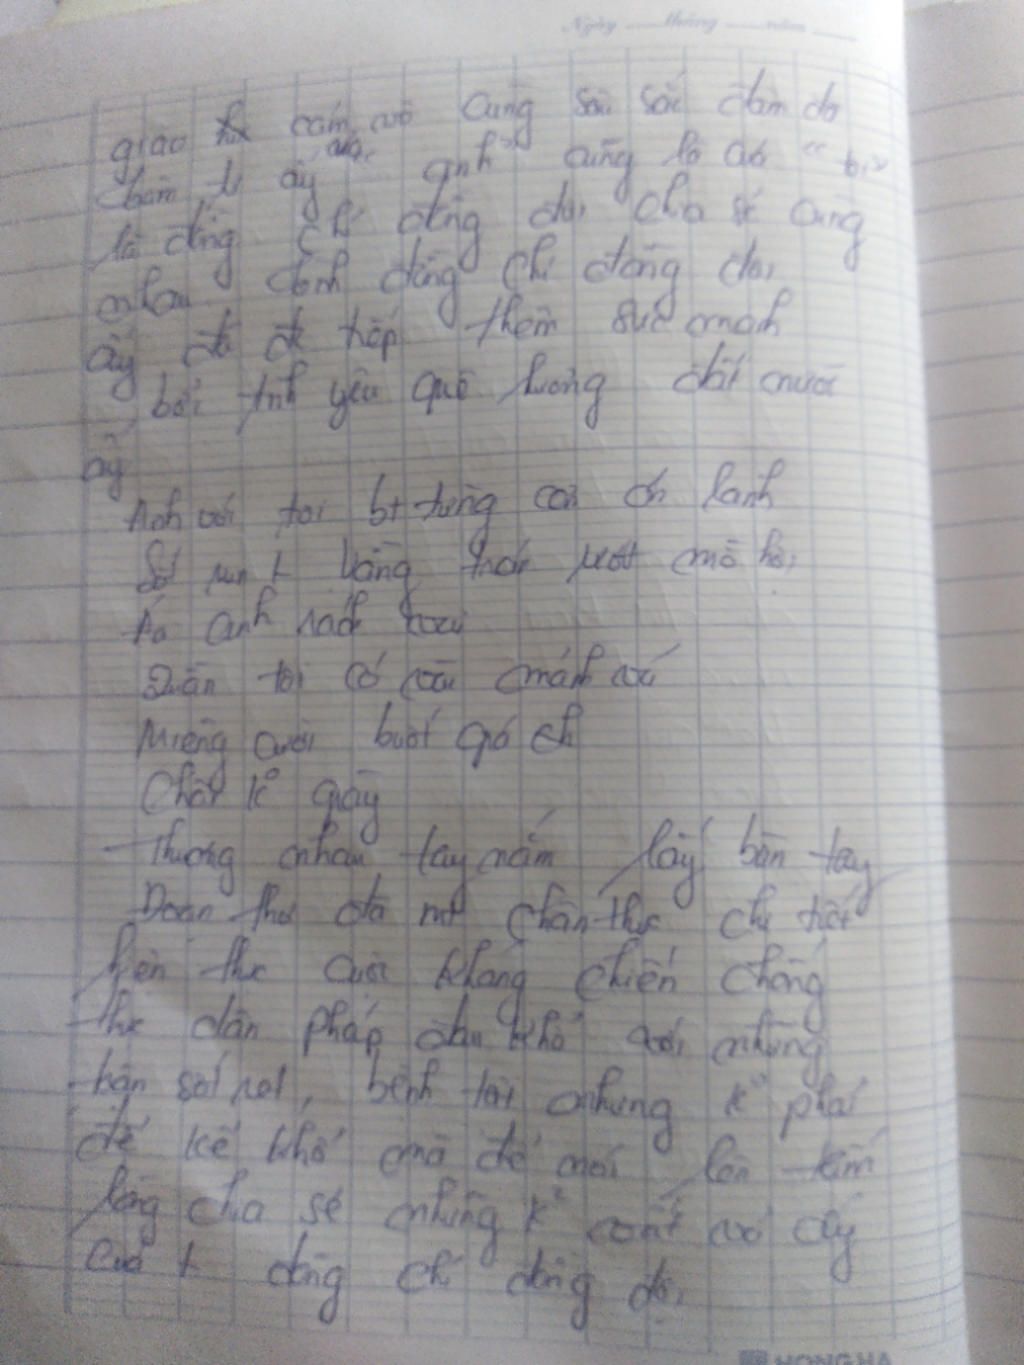 Ngày tháng năm
giao cảm vô cùng sâu sắc đậm đà
ấy các anh cũng là
là đồng chí đồng đội chia sẻ cùng
nhau tình đồng chí đồng đội
ấy đã tiếp thêm sức mạnh
bởi tình yêu quê hương đất nước
ấy
Anh với tôi bt từng cơn ớn lạnh
Sốt run t Vầng trán ướt mồ hôi
Áo anh rách vai
Quần tôi có vài mảnh vá
Miệng cười buốt giá
Chân k giày
Thương nhau tay nắm lấy bàn tay
Đoạn thơ đã chân thực chi tiết
hiện thực cuộc kháng chiến chống
thực dân pháp đầy khổ với những
bận sốt rét, bệnh tật nhưng k phải
để kể khổ mà để nói lên tấm
lòng chia sẻ những k vất vả ấy
của t đồng chí đồng đội
HONG HA